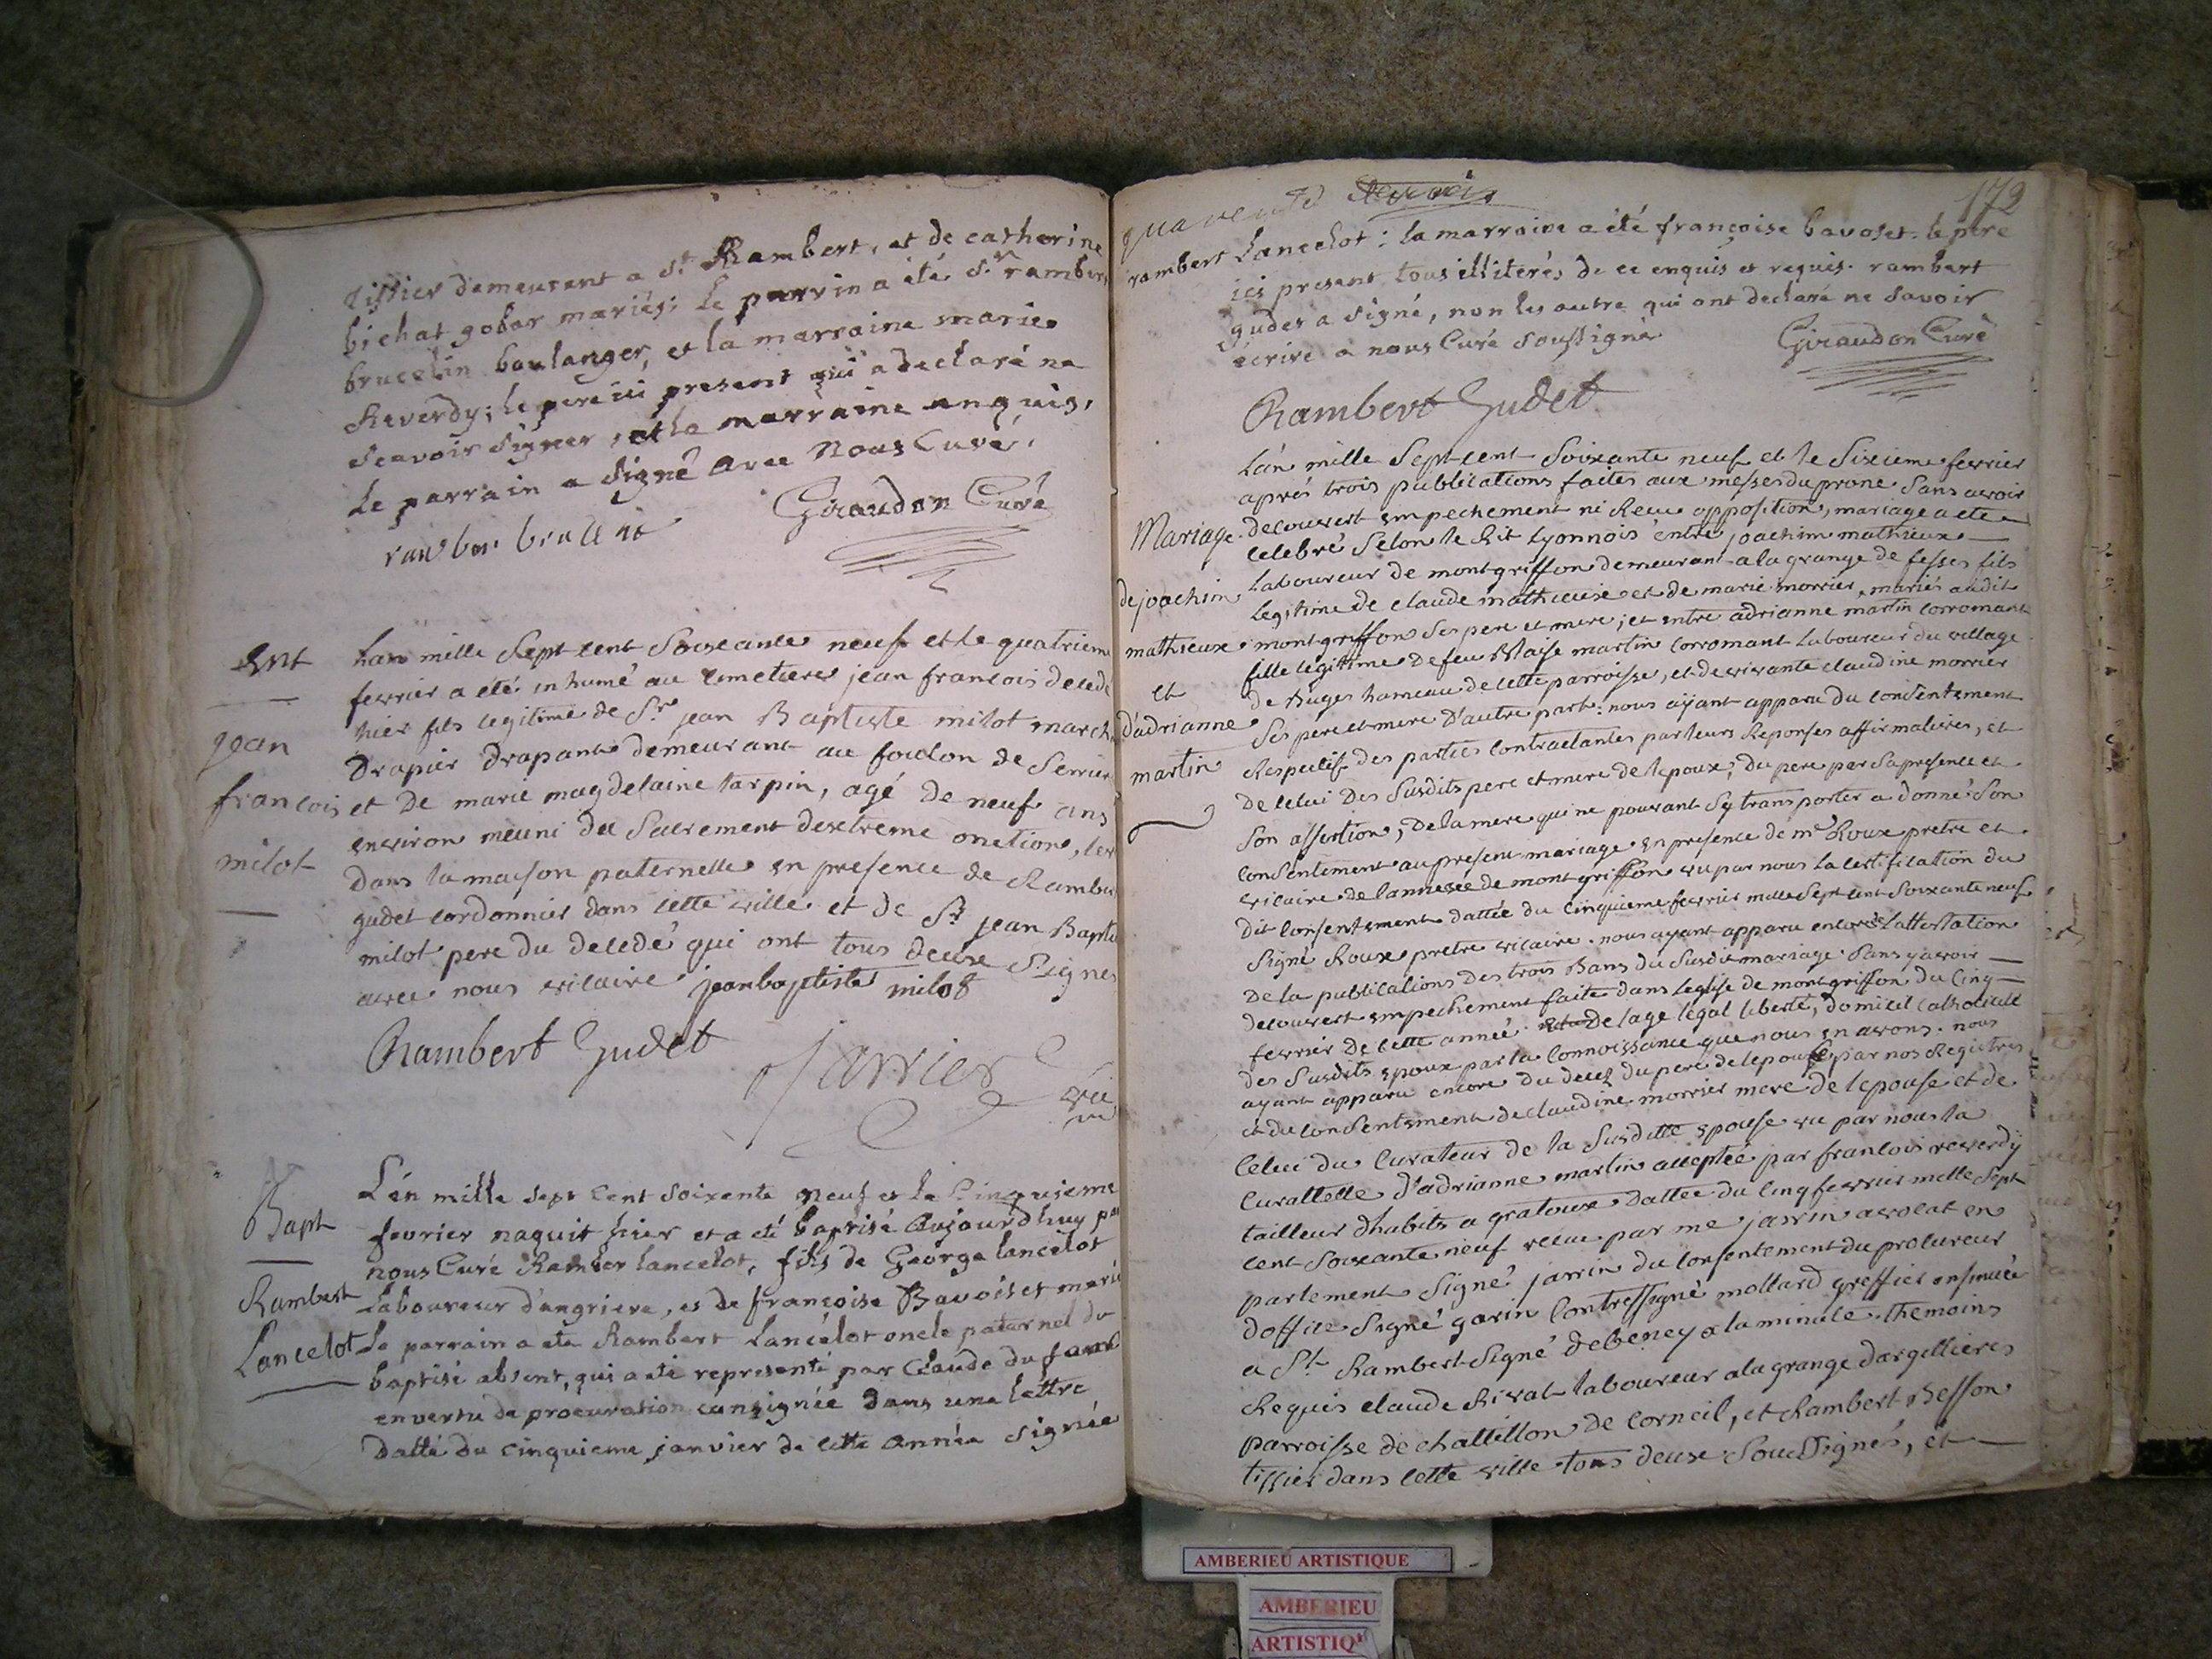 tissier demeurant a St Rambert, et de catherine
bichat gobar mariés; le parrin a été Sr rambert
brucelin boulanger, et la marraine marie
Reverdy; le pere ici present qui a declaré ne
scavoir signer, et la marraine enquis,
le parrain a signé avec Nous Curé.
Giraudon Curé
Ent
jean
francois
milot
Lan mille Sept cent Soixante neuf et le quatrieme
fevrier a eté inhumé au cimetiere jean francois decedé
hier fils legitime de Sr jean Baptiste milot march
Drapier Drapant demeurant au foulon de Serrier
et De marie magdelaine tarpin, agé De neuf ans
environ meuni du Sacrement dextreme onction,
Dans la maison paternelle en presence de Rambe
gudet cordonnier dans cette ville et de Sr jean Bapti
milot pere du decedé qui ont tous deux Signes
avec nous vicaire jeanbaptiste milot
Rambert Gudet
Jarrier
vic
Bapt
Rambert
Lancelot
L'én mille sept Cent soixente neuf et le Cinquieme
fevrier naquit hier et a eté baptisé Aujourdhuy par
nous Curé Rambert lancelot, fils de George lancelot
Laboureur d'angriere, es de françoise Bavoiset marié
Le parrain a ete Rambert Lancélot oncle paternel du
baptisé absent, qui a eté representé par Claude du
en vertu de procuration consignée dans une lettre
datté du cinquieme janvier de cette année signée
quarente
172
rambert Lancelot: la marraine a été françoise bavoset. le pere
ici present tous illiterés de ce enquis et requis. rambert
gudet a signé, non les autre qui ont declaré ne savoir
écrire a nous Curé soussigné
Giraudon Curé
Rambert Gudet
Mariage
de joachim
mathieux
et
d'adrianne
martin
L'an mille Sept cent Soixante neuf et le Sixieme fevrier
aprés trois publications faites aux messes du prone Sans avoir
decouvert empechement ni Recu opposition, mariage a eté
celebré Selon le Rit Lyonnois entre joachim mathieux
Laboureur de montgriffon demeurant a la grange de fesses fils
legitime de claude mathieux et de marie morrier, mariés audit
montgriffon Ses pere et mere; et entre adrianne martin corromant
fille légitime de feu Blaise martin corromant Laboureur du village
de Buges hameau de cette parroisse, et de vivante claudine morrier
Ses pere et mere D'autre part: nous ayant apparu du consentement
Respectif des parties contractantes par leurs Reponses affirmatives, et
De celui Des Susdits pere et mere de lepoux; Du pere par sa presence et
Son assertion; De la mere qui ne pouvant Sy transporter a donné Son
consentement au present mariage en presence de me Roux pretre et
vicaire de lannexe de montgriffon vu par nous la certification du
dit consentement dattée du cinquieme fevrier mille Sept cent Soixante neuf
Signé Roux pretre vicaire. nous ayant apparu encore de Lattestation
De la publications des trois Bans du Susdit mariage Sans y avoir
decouvert empechement faite dans leglise de montgriffon du Cinq
fevrier de cette année. De lage légal liberté, domicil catholicité
des Susdits epoux par la connoissance que nous en avons. nous
ayant apparu encore du decez du pere de lepouse par nos Registres
et du consentement de claudine morrier mere de lepouse et de
Celui du Curateur de la Susditte epouse vu par nous la
Curattelle d'adrianne martin acceptée par francois reverdÿ
tailleur dhabits a gratoux dattée du cinq fevrier mille Sept
cent Soixante neuf recue par me jarrin avocat en
parlement Signé jarrin du consentement du procureur
doffice Signé garin Contresigné mollard greffier insinuée
a St Rambert Signé debeney a la minute. themoins
Requis claude Rival laboureur a la grange dargillieres
parroisse de chatillon de corneil, et Rambert Besson
tissier dans cette ville tous deux Soussignés, et
AMBERIEU ARTISTIQUE
AMBERIEU
ARTISTIQ